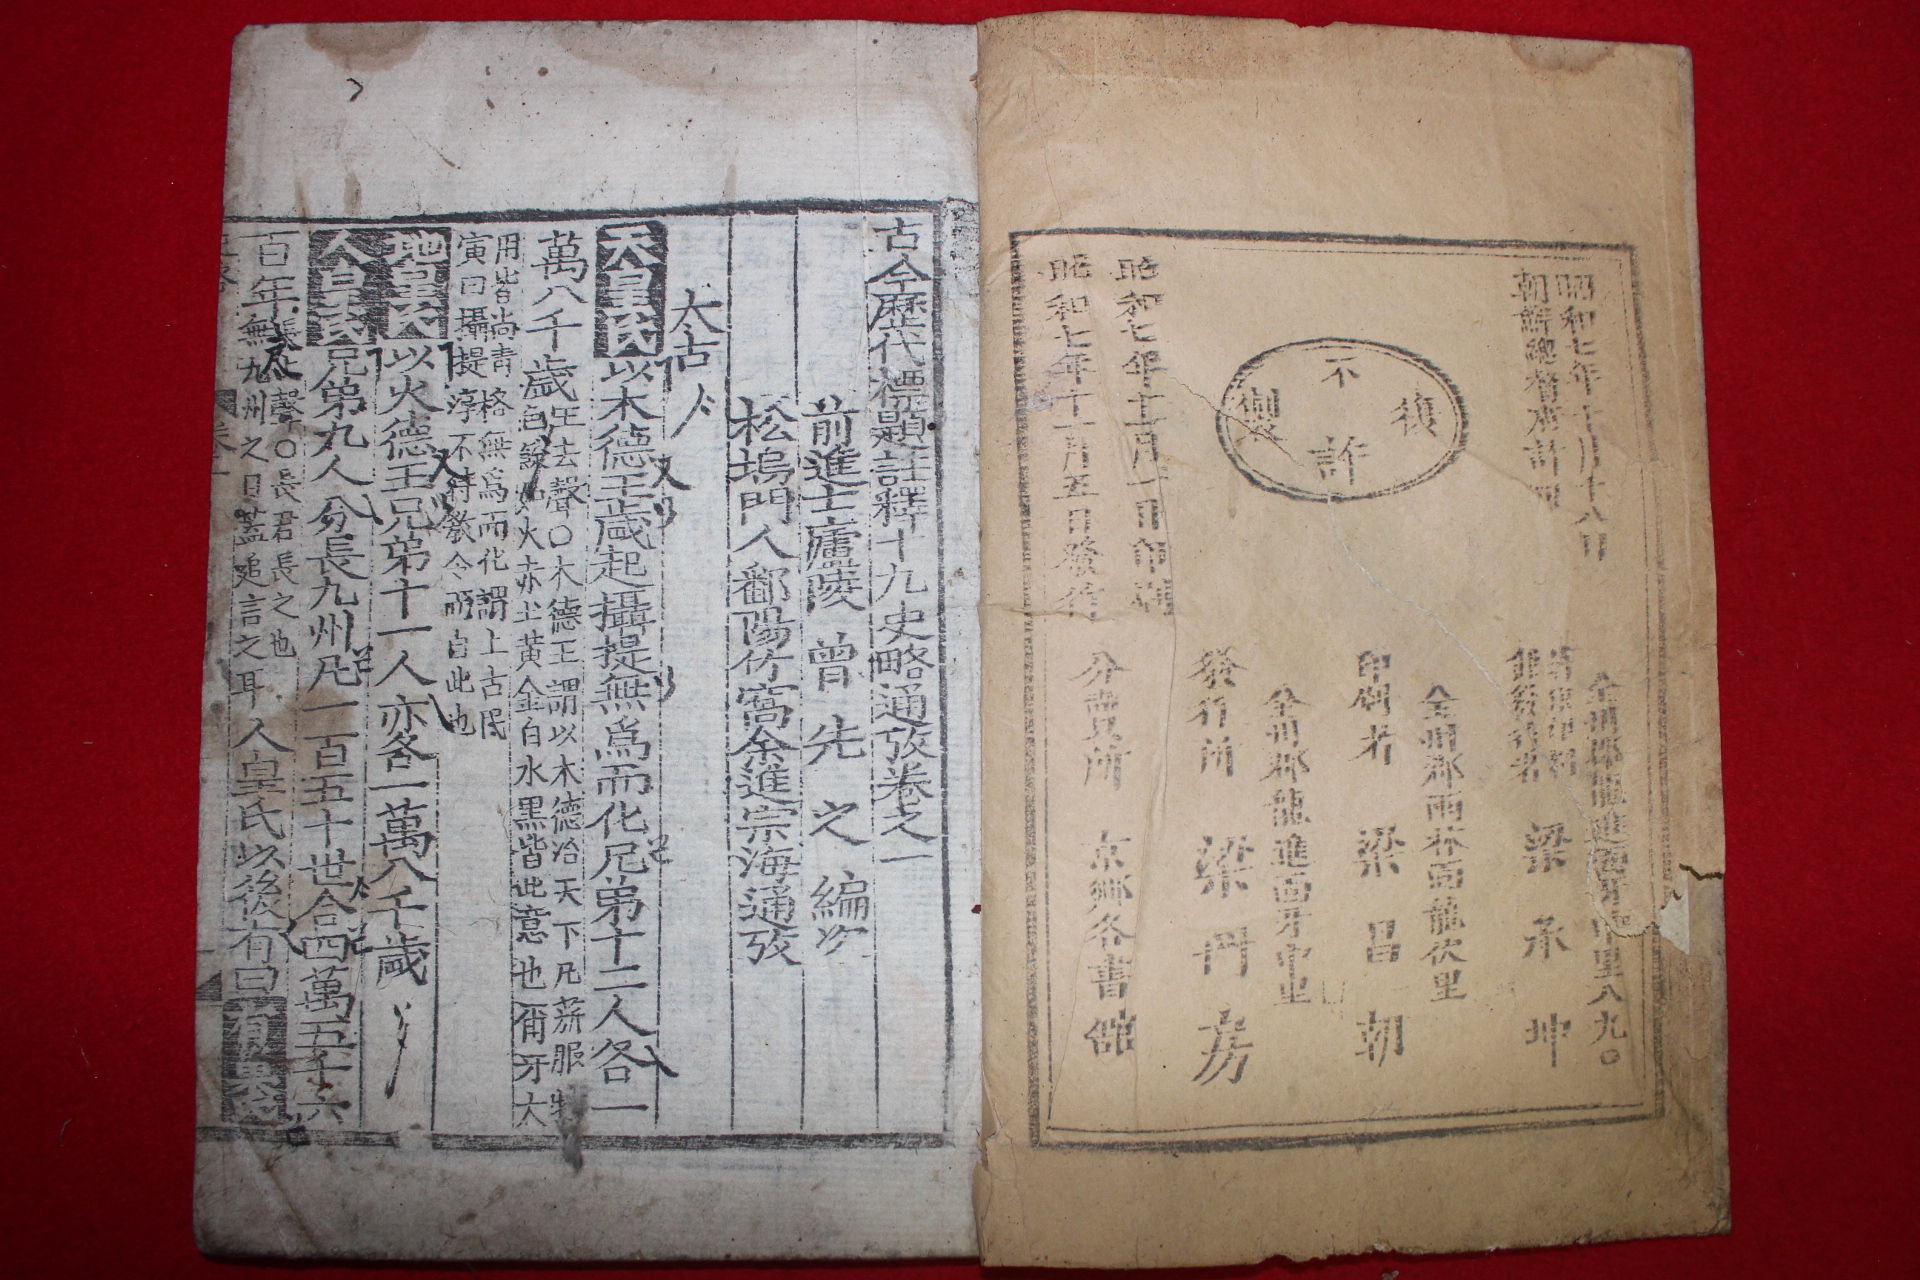 昭和七年十月十八日
朝鮮總督府許可
不許復製
昭和七年十一月一日印刷
昭和七年十一月五日發行
金州郡龍進面牙中里八九〇
梁承坤
金州郡雨林面龍伏里
印刷者 梁昌朝
金州郡龍進面牙中里
發行所 梁册房
分賣所 京鄉各書舘
古今歷代標題註釋十九史略通攷卷之一
前進士廬陵 曾先之編次
松塢門人鄱陽竹窩余進宗海通攷
太古
天皇氏以木德王歲起攝提無爲而化兄弟十二人各一
萬八千歲王去聲〇木德王謂以木德治天下凡荐服
色說如火赤土黃金白水黑皆此意也爾牙大
用皆尚靑格無爲而化謂上古民
寅曰攝提淳不待敎令而自此也
地皇氏以火德王兄弟十一人亦各一萬八千歲
人皇氏兄弟九人分長九州凡一百五十世合四萬五千六
百年長上聲〇長君長之也
無九州之日蓋追言之耳人皇氏以後有曰